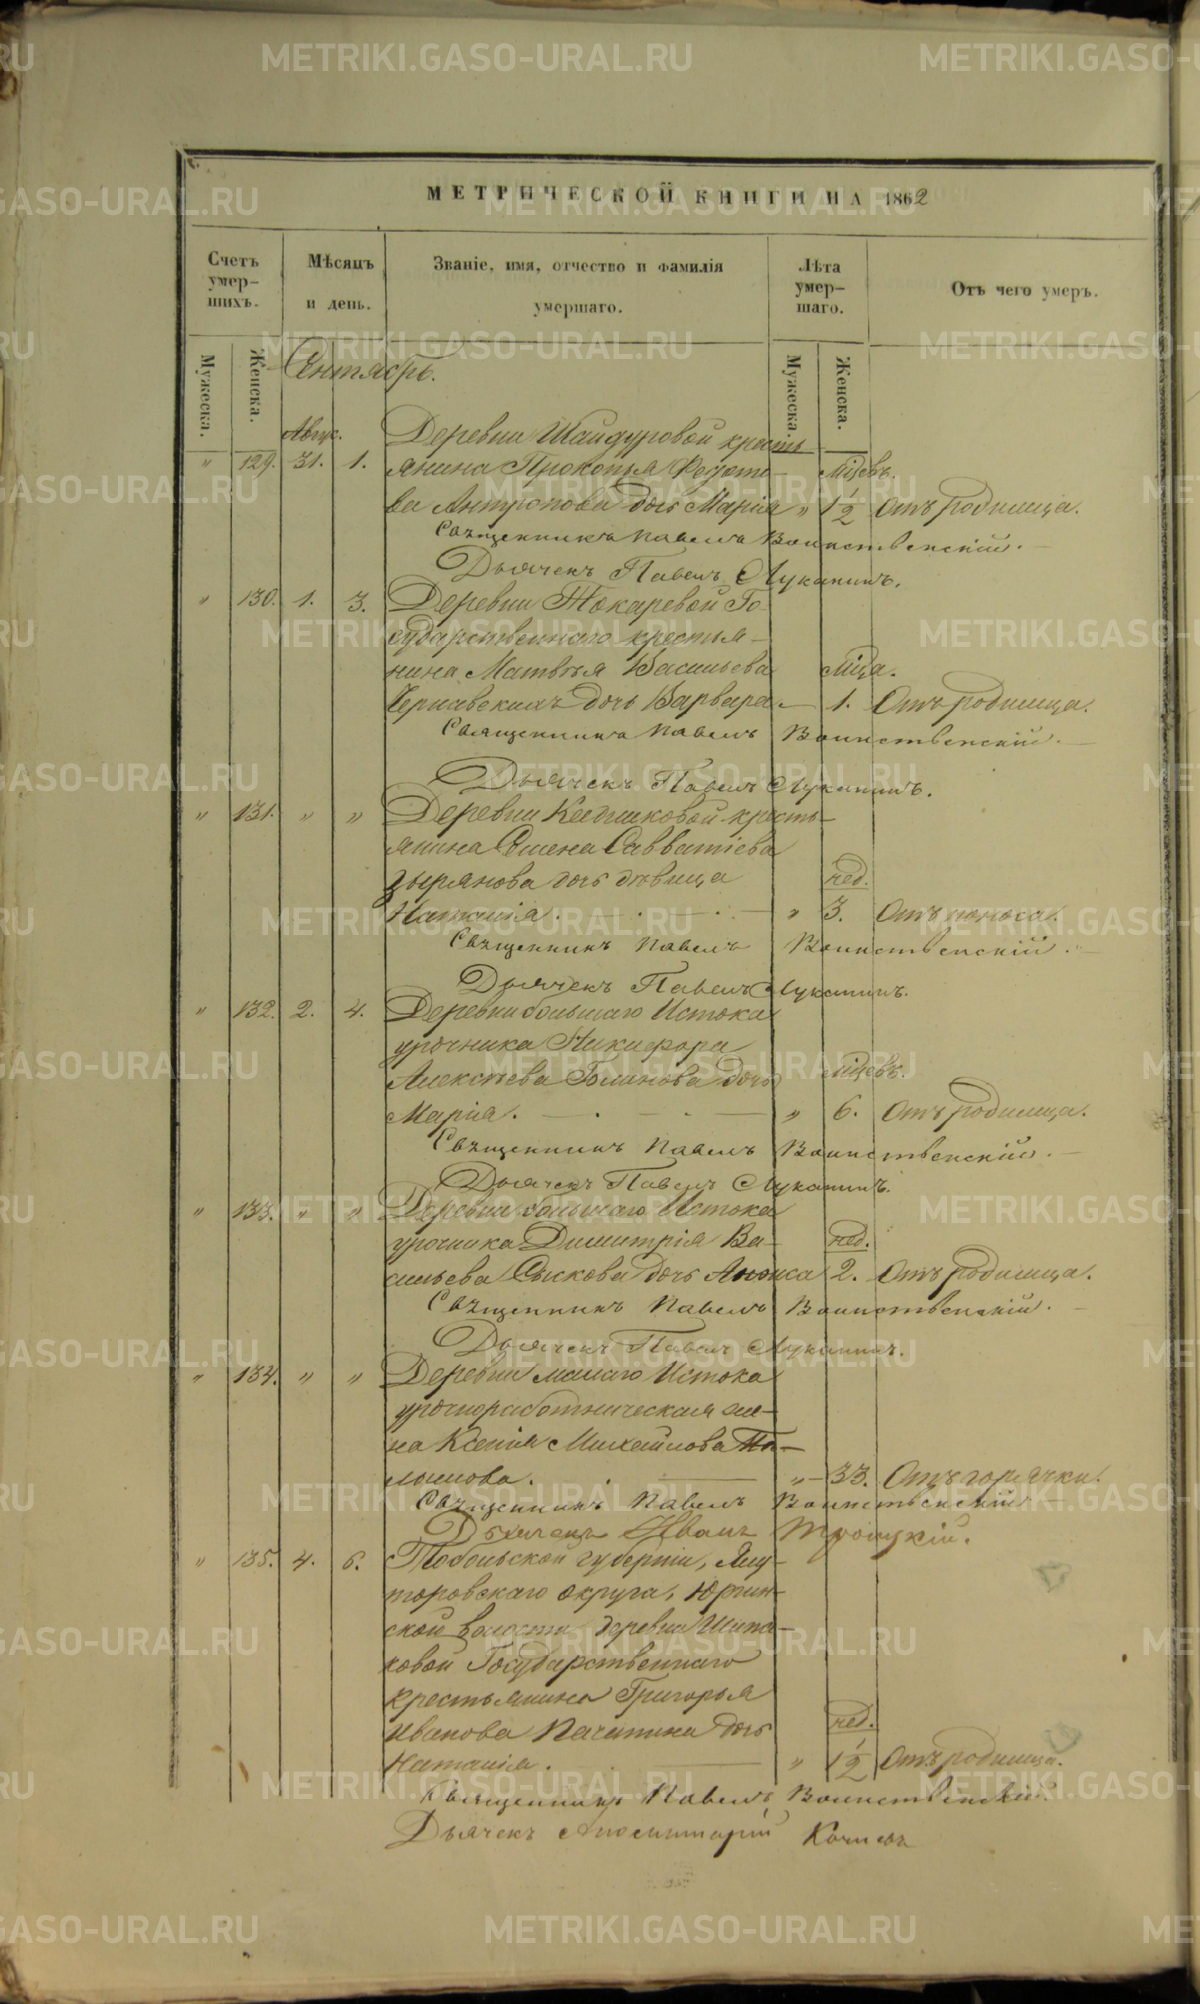 МЕТРИЧЕСКОЙ КНИГИ НА 1862
Счетъ умер-шихъ.
Мѣсяцъ и день.
Званіе, имя, отчество и фамилія умершаго.
Лѣта умер-шаго.
Отъ чего умеръ.
Мужеска.
Женска.
Мужеска.
Женска.
Сентябрь.
Авгус. Деревни Шайдуровой кресть
" 129. 31. 1. янина Прокопья мцевъ.
ва Антропова дочь Марія " 1 1/2 Отъ родимца.
Священникъ Павелъ Воинственскій.
Дьячекъ Павелъ Луканинъ.
" 130. 1. 3. Деревни Токаревой Го-
сударственнаго крестья-
нина Матвѣя Васильева мца.
Чернавскихъ дочь Варвара. 1. Отъ родимца.
Священникъ Павелъ Воинственскій.
Дьячекъ Павелъ Луканинъ.
" 131. " " Деревни кресть-
янина Семена Савватіева
Зырянова дочь дѣвица нед.
Наталія. " 3. Отъ поноса.
Священникъ Павелъ Воинственскій.
Дьячекъ Павелъ Луканинъ.
" 132. 2. 4. Деревни большаго Истока
урочника Никифора
Алексѣева дочь мцевъ.
Марія. " 6. Отъ родимца.
Священникъ Павелъ Воинственскій.
Дьячекъ Павелъ Луканинъ.
" 133. " " Деревни большаго Истока
урочника Димитрія Ва- нед.
сильева дочь Анѳиса 2. Отъ родимца.
Священникъ Павелъ Воинственскій.
Дьячекъ Павелъ Луканинъ.
" 134. " " Деревни малаго Истока
урочнорабтническая же-
на Ксенія Михайлова
" 33. Отъ горячки.
Священникъ Павелъ Воинственскій
Дьячекъ Иванъ Троицкій.
" 135. 4. 6. Тобольской губерніи, Ялу-
торовскаго округа, Юргин-
ской волости деревни Шипа-
ковой Государственнаго
крестьянина Григорья
Иванова дочь нед.
Наталія. " 1 1/2 Отъ родимца.
Священникъ Павелъ Воинственскій
Дьячекъ
METRIKI.GASO-URAL.RU